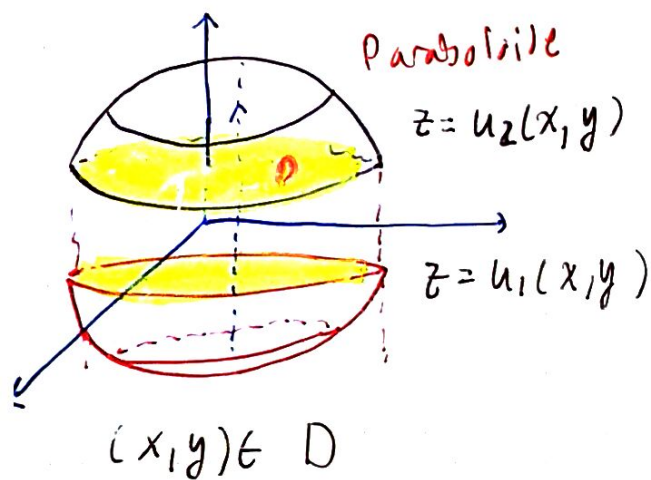 Paraboloide
z = u₂(x, y)
D
z = u₁(x, y)
(x, y) ∈ D